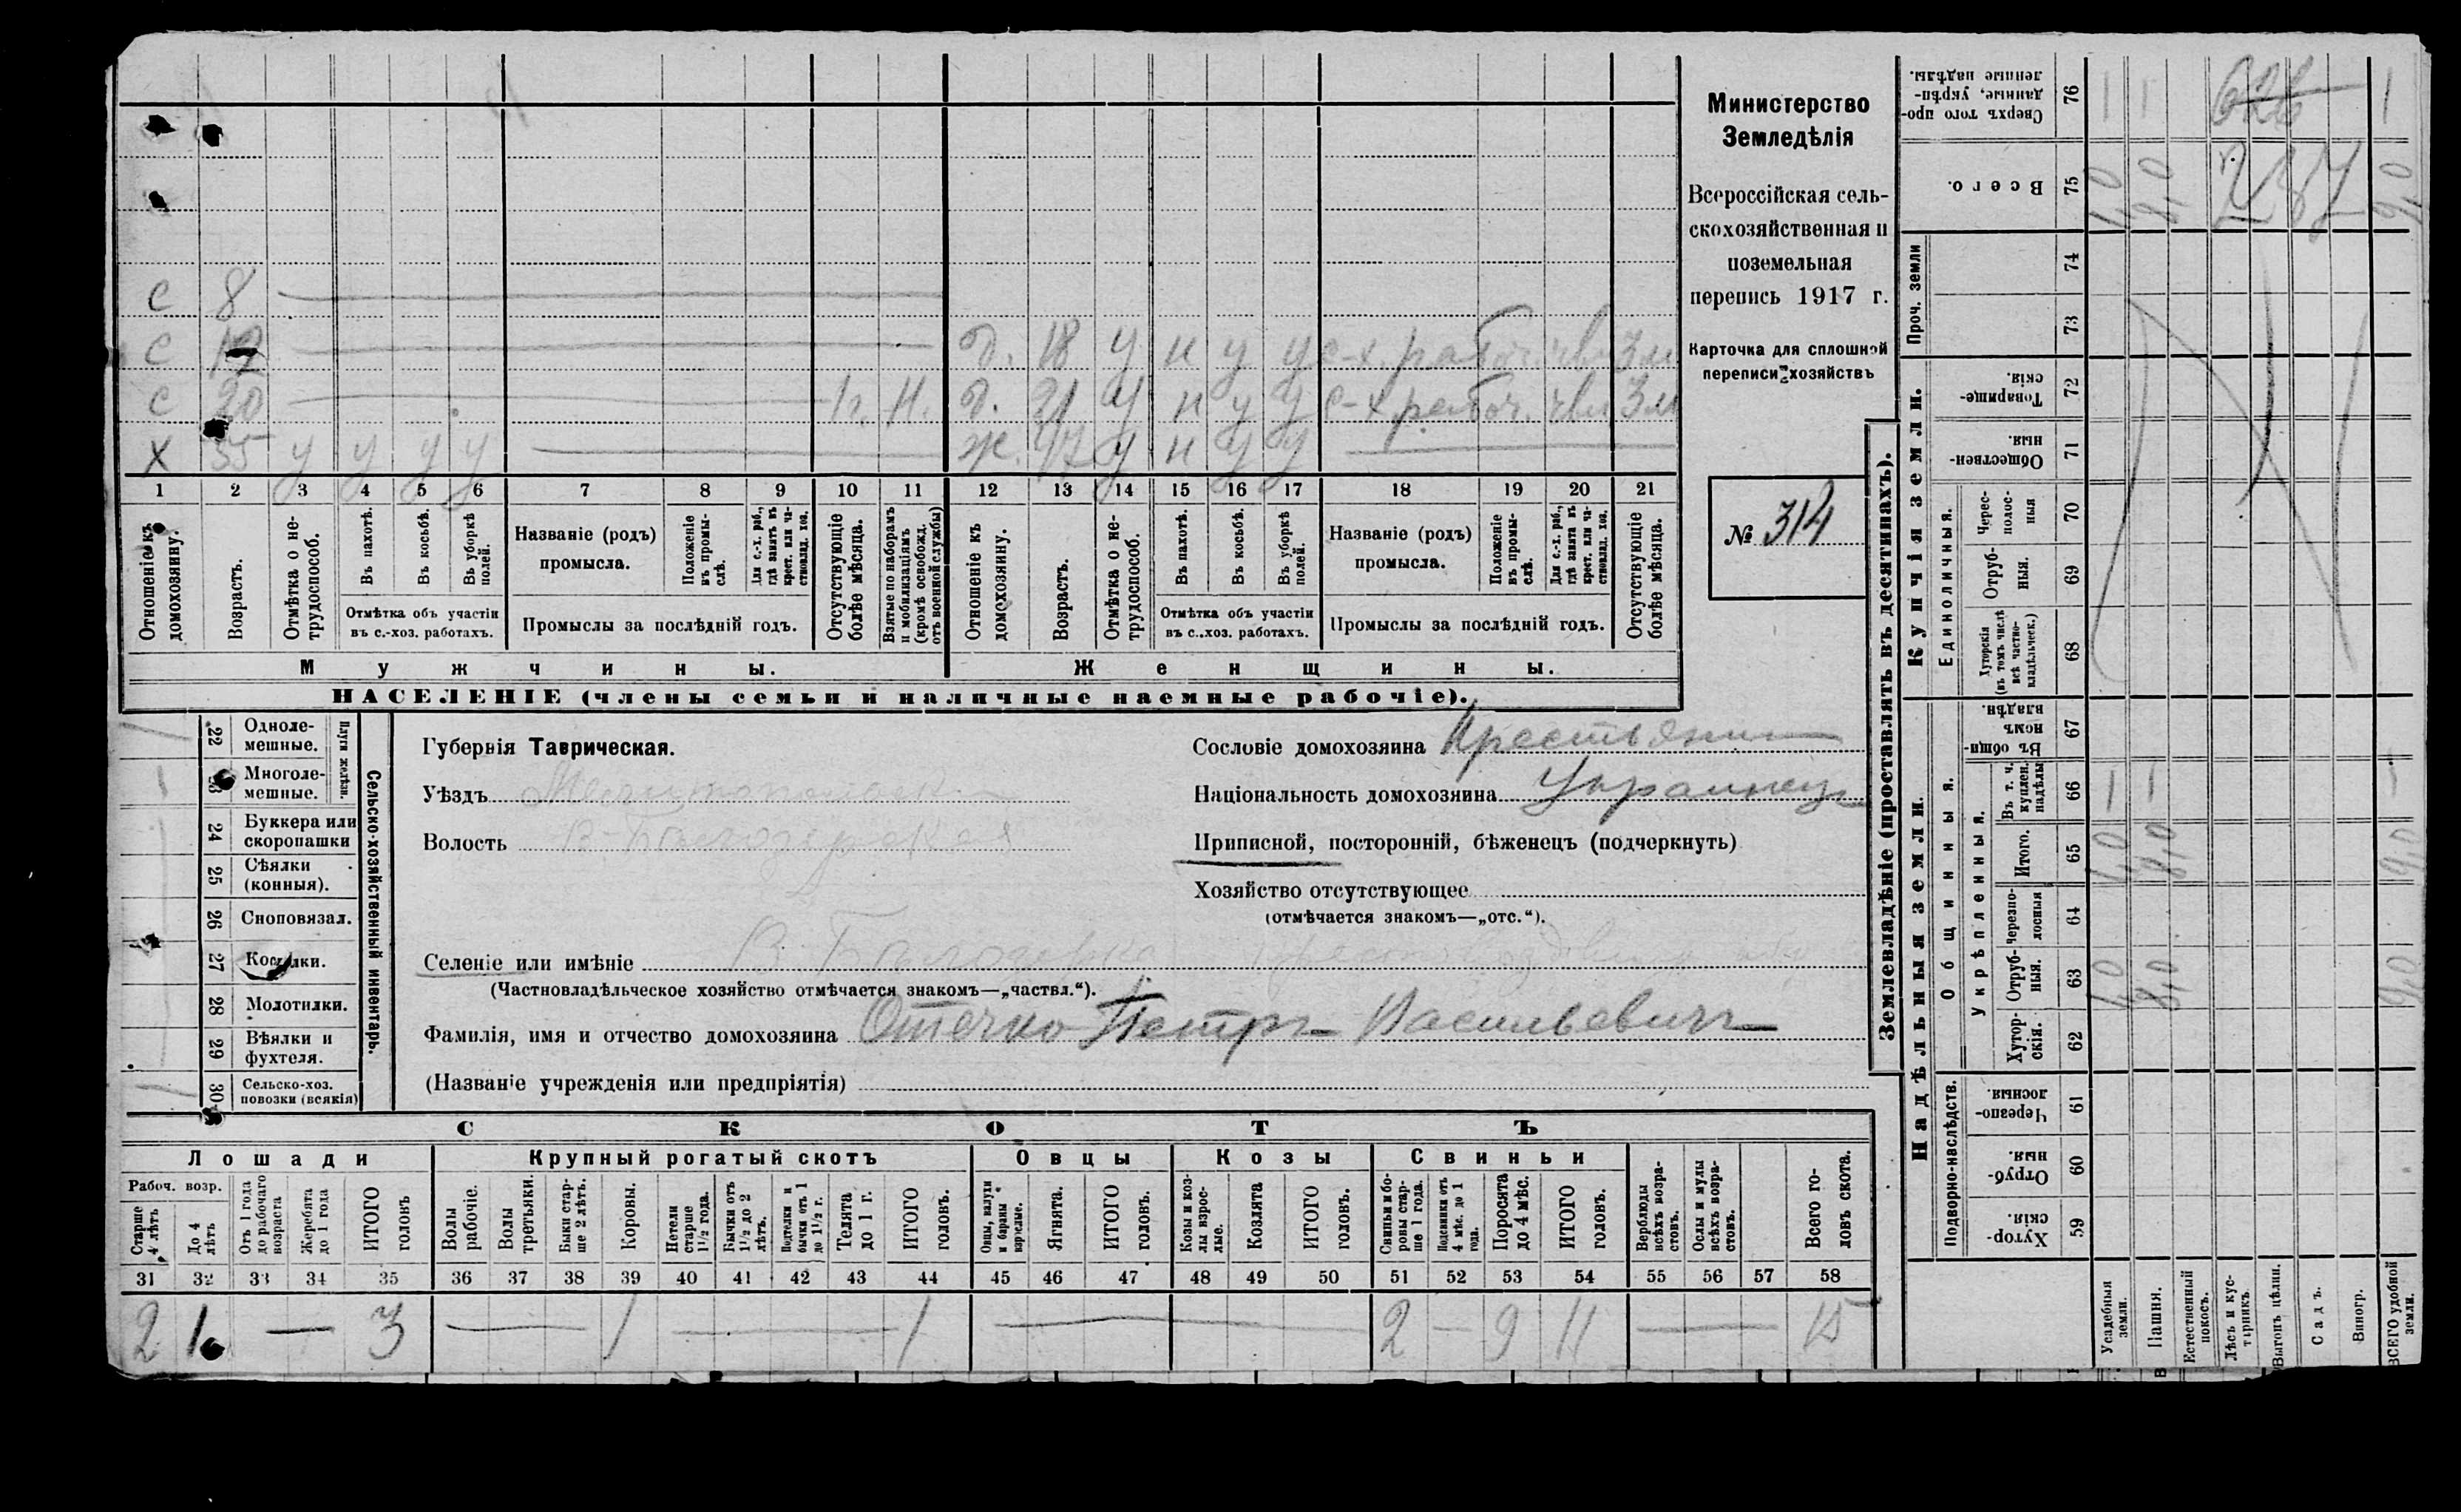 Министерство
Земледѣлія
Всероссійская сель-
скохозяйственная и
поземельная
перепись 1917 г.
Карточка для сплошной
переписи хозяйствъ
№ 314
с 8
с 12 д. 18 у н у у с-х. рабоч.
с 20 1 г. н. д. 21 у н у у с-х рабоч.
х 35 у у у у ж. 47 у н у у
1 2 3 4 5 6 7 8 9 10 11 12 13 14 15 16 17 18 19 20 21
Отношеніе къ домохозяину.
Возрастъ.
Отмѣтка о не-трудоспособ.
Въ пахотѣ.
Въ косьбѣ.
Въ уборкѣ полей.
Отмѣтка объ участіи въ с.-хоз. работахъ.
Названіе (родъ) промысла.
Положеніе въ промы-слѣ.
Для с.-х. раб., гдѣ занятъ въ крест. или ча-стновлад. хоз.
Промыслы за послѣдній годъ.
Отсутствующіе болѣе мѣсяца.
Взятые по наборамъ и мобилизаціямъ (кромѣ освобожд. отъ военной службы)
Отношеніе къ домохозяину.
Возрастъ.
Отмѣтка о не-трудоспособ.
Въ пахотѣ.
Въ косьбѣ.
Въ уборкѣ полей.
Отмѣтка объ участіи въ с..хоз. работахъ.
Названіе (родъ) промысла.
Положеніе въ промы-слѣ.
Для с.-х. раб., гдѣ занята въ крест. или ча-стновлад. хоз.
Промыслы за послѣдній годъ.
Отсутствующіе болѣе мѣсяца.
Мужчины. Женщины.
НАСЕЛЕНІЕ (члены семьи и наличные наемные рабочіе).
Сельско-хозяйственный инвентарь.
Плуги желѣзн.
22 Одноле-мешные.
23 Многоле-мешные.
24 Буккера или скоропашки
25 Сѣялки (конныя).
26 Сноповязал.
27 Косилки.
28 Молотилки.
29 Вѣялки и фухтеля.
30 Сельско-хоз. повозки (всякія)
Губернія Таврическая.
Уѣздъ Мелитопольскій
Волость В-Бѣлозерская
Сословіе домохозяина Крестьянин
Національность домохозяина Украинец
Приписной, посторонній, бѣженецъ (подчеркнуть)
Хозяйство отсутствующее
(отмѣчается знакомъ—„отс.“).
Селеніе или имѣніе
(Частновладѣльческое хозяйство отмѣчается знакомъ—„частвл.“).
Фамилія, имя и отчество домохозяина Отечко Петръ Васильевичъ
(Названіе учрежденія или предпріятія)
СКОТЪ
Лошади Крупный рогатый скотъ Овцы Козы Свиньи
Рабоч. возр.
Старше 4 лѣтъ
До 4 лѣтъ
Отъ 1 года до рабочаго возраста
Жеребята до 1 года
ИТОГО головъ
Волы рабочіе.
Волы третьяки.
Быки стар-ше 2 лѣтъ.
Коровы.
Нетели старше 1½ года.
Бычки отъ 1½ до 2 лѣтъ.
Подтелки и бычки отъ 1 до 1½ г.
Телята до 1 г.
ИТОГО головъ.
Овцы, валухи и бараны взрослые.
Ягнята.
ИТОГО головъ.
Козы и коз-лы взрос-лые.
Козлята
ИТОГО головъ.
Свиньи и бо-ровы стар-ше 1 года.
Подсвинки отъ 4 мѣс. до 1 года.
Поросята до 4 мѣс.
ИТОГО головъ.
Верблюды всѣхъ возра-стовъ.
Ослы и мулы всѣхъ возра-стовъ.
Всего го-ловъ скота.
31 32 33 34 35 36 37 38 39 40 41 42 43 44 45 46 47 48 49 50 51 52 53 54 55 56 57 58
2 1 — 3 — 1 — 1 — 2 — 9 11 — 15
Землевладѣніе (проставлять въ десятинахъ).
Надѣльныя земли. Купчія земли. Проч. земли
Подворно-наслѣдств. Общинныя. Укрѣпленныя. Единоличныя.
59 Хутор-скія.
60 Отруб-ныя.
61 Черезпо-лосныя
62 Хутор-скія.
63 Отруб-ныя. 1,0 8,0 9,0
64 Черезпо-лосныя
65 Итого. 1,0 8,0 9,0
66 Въ т. ч. куплен. надѣлы
67 Въ общин-номъ владѣн.
68 Хуторскія (въ томъ числѣ всѣ частно-владѣльческ.)
69 Отруб-ныя.
70 Черес-полос-ныя
71 Обществен-ныя.
72 Товарище-скія.
73
74
75 Всего. 1,0 8,0 9,0
76 Сверхъ того про-данные, укрѣп-ленные надѣлы.
Усадебныя земли.
Пашня.
Естественный покосъ.
Лѣсъ и кус-тарникъ.
Выгонъ цѣлин.
Садъ.
Виногр.
ВСЕГО удобной земли.